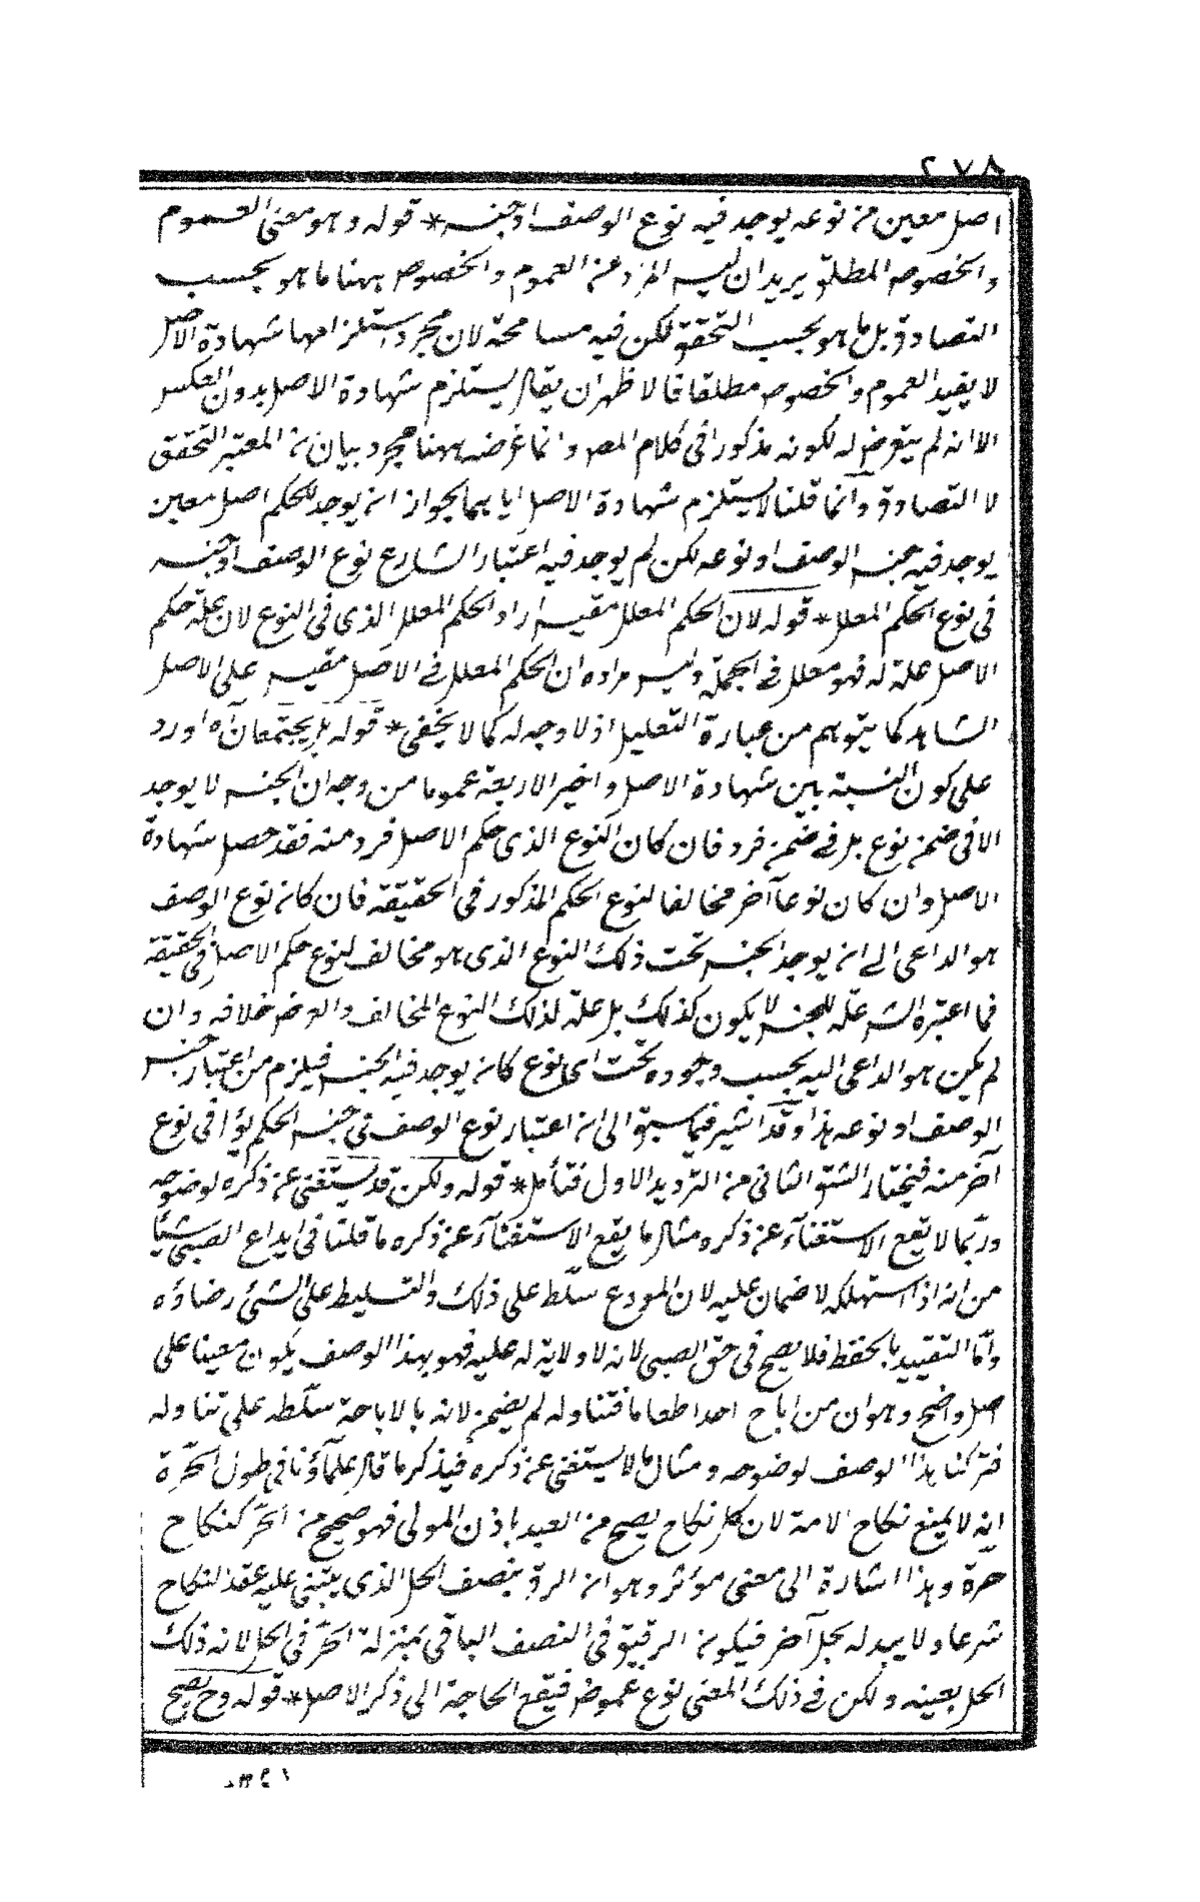 ٢٧٨
اصل معين من نوعه يوجد فيه نوع الوصف او جنسه * قوله وهو معنى العموم
والخصوص المطلق يريد ان ليس المراد من العموم والخصوص ههنا ما هو بحسب
التصادق بل ما هو بحسب التحقق لكن فيه مسامحة لان مجرد استلزامها شهادة الاصل
لا يفيد العموم والخصوص مطلقا فالاظهر ان يقال يستلزم شهادة الاصل بدون العكس
الا انه لم يتعرض له لكونه مذكورا فى كلام المص وانما غرضه ههنا مجرد بيان ان المعتبر التحقق
لا التصادق وانما قلنا لا يستلزم شهادة الاصل اياهما لجواز ان يوجد للحكم اصل معين
يوجد فيه جنس الوصف او نوعه لكن لم يوجد فيه اعتبار الشارع نوع الوصف او جنسه
فى نوع الحكم المعلل * قوله لان الحكم المعلل مقيس اراد الحكم المعلل الذى فى النوع لان علة حكم
الاصل علة له فهو معلل فى الجملة وليس مراده ان الحكم المعلل فى الاصل مقيس على الاصل
الشاهد كما يتوهم من عبارة التعليل اذ لا وجه له كما لا يخفى * قوله بل يجتمعان آه اورد
على كون النسبة بين شهادة الاصل واخير الاربعة عموما من وجه ان الجنس لا يوجد
الا فى ضمن نوع بل فى ضمن فرد فان كان النوع الذى حكم الاصل فرد منه فقد حصل شهادة
الاصل وان كان نوعا آخر مخالفا لنوع الحكم المذكور فى الحقيقة فان كان نوع الوصف
هو الداعى الى ان يوجد الجنس تحت ذلك النوع الذى هو مخالف لنوع حكم الاصل فى الحقيقة
فما اعتبره الشرع علة للجنس لا يكون كذلك بل علة لذلك النوع المخالف والفرض خلافه وان
لم يكن هو الداعى اليه بحسب وجوده تحت اى نوع كان يوجد فيه الجنس فيلزم من اعتبار جنس
الوصف او نوعه هذا وقد اشير فيما سبق الى ان اعتبار نوع الوصف فى جنس الحكم يؤل فى نوع
آخر منه فنختار الشق الثانى من الترديد الاول فتأمل * قوله ولكن قد يستغنى عن ذكره لوضوحه
وربما لا يقع الاستغناء عن ذكره مثال ما يقع الاستغناء عن ذكره ما قلنا فى ايداع الصبى شيئا
من انه اذا استهلكه لا ضمان عليه لان المودع سلّط على ذلك والتسليط على الشئ رضاؤه
وامّا التقييد بالحفظ فلا يصح فى حق الصبى لانه لا ولاية له عليه فهو بهذا الوصف يكون معينا على
اصل واضح وهو ان من اباح احدا طعاما فتناوله لم يضمن لانه بالاباحة سلّطه على تناوله
فتركنا هذا الوصف لوضوحه ومثال ما لا يستغنى عن ذكره فيذكر ما قال علماؤنا فى طول الحرّة
انه لا يمنع نكاح الامة لان كل نكاح يصح من العبد باذن المولى فهو صحيح من الحرّ كنكاح
حرّة وهذا اشارة الى معنى مؤثر وهو ان الرق ينصف الحل الذى يبتنى عليه عقد النكاح
شرعا ولا يبدله بحل آخر فيكون الرقيق فى النصف الباقى بمنزلة الحرّ فى الحل لانه ذلك
الحل بعينه ولكن فى ذلك المعنى نوع غموض فيقع الحاجة الى ذكر الاصل * قوله وح يصح